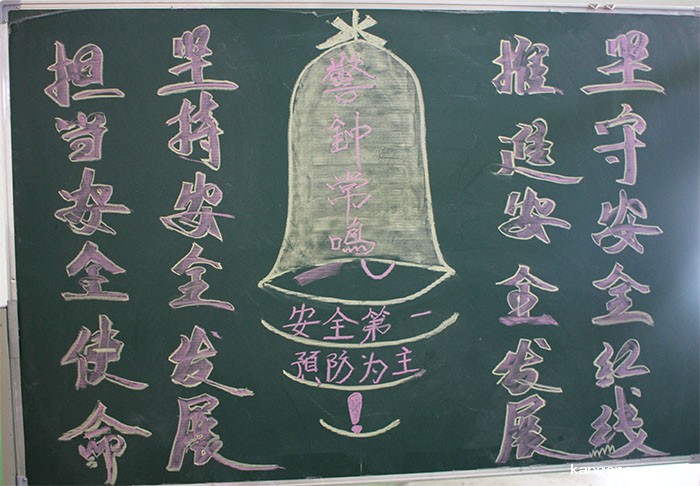 坚守安全红线
推進安全发展
警鈡常鳴
安全第一
預防为主
！
坚持安全发展
担当安全使命